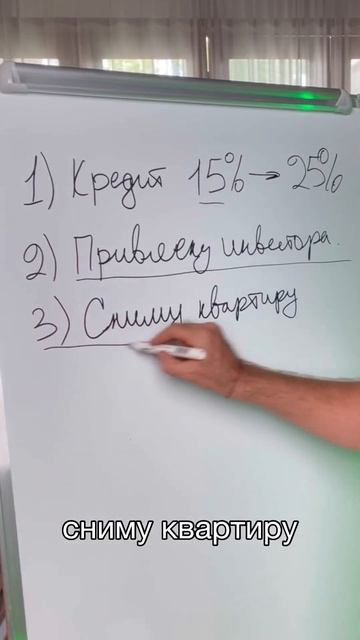 1) Кредит 15% → 25%
2) Привлеку инвестора.
3) Сниму квартиру
сниму квартиру